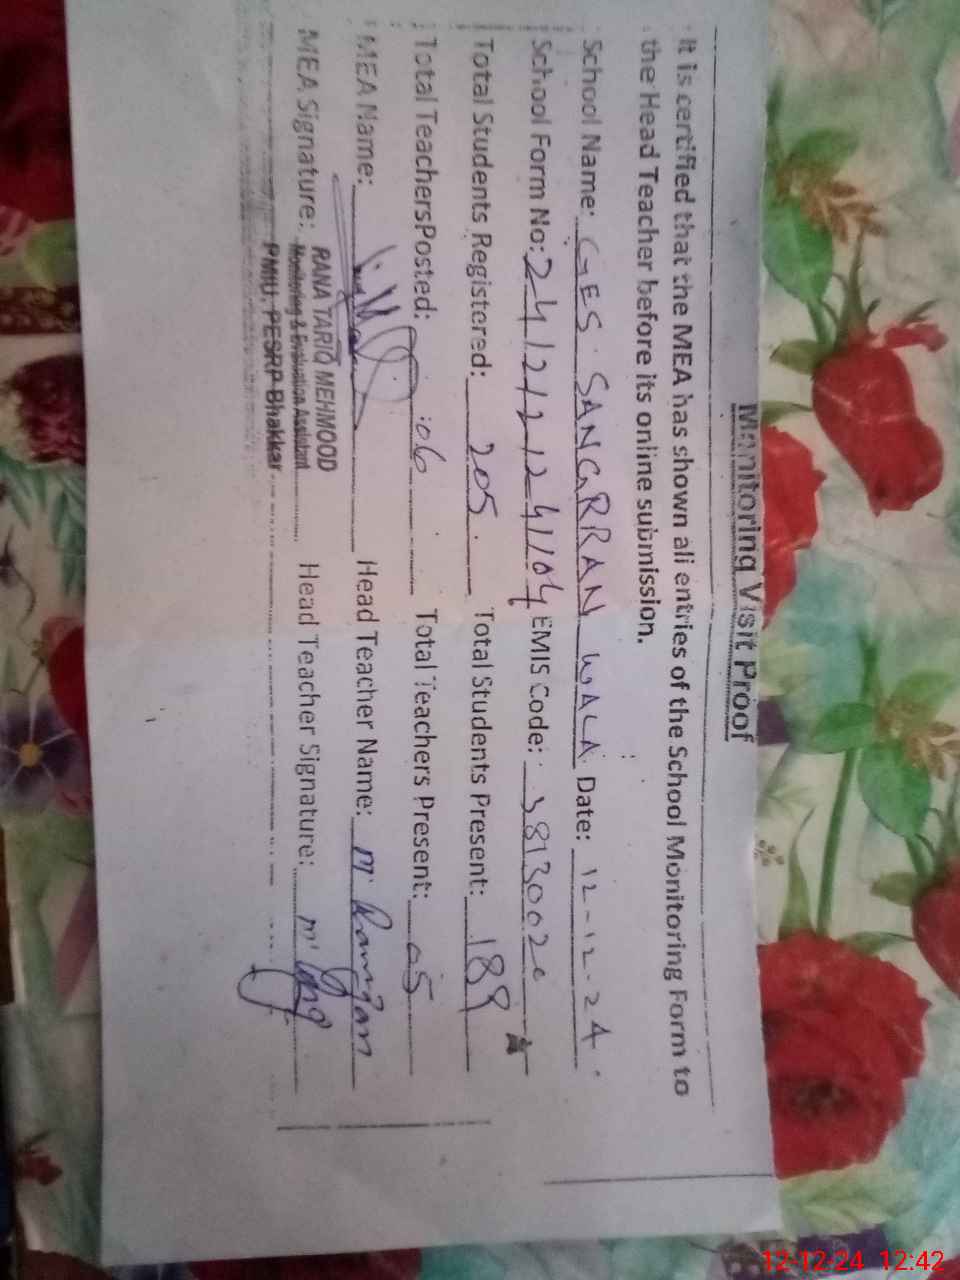 Monitoring Visit Proof
It is certified that the MEA has shown all entries of the School Monitoring Form to
the Head Teacher before its online submission.
School Name: GES SANGRRAN WALA Date: 12-12-24
School Form No: EMIS Code: 38130020
Total Students Registered: 205 Total Students Present: 189
Total TeachersPosted: 06 Total Teachers Present: 05
MEA Name: Head Teacher Name: M. Ramzan
MEA Signature: RANA TARIQ MEHMOOD Head Teacher Signature:
Monitoring & Evaluation Assistant
PMIU, PESRP Bhakkar
12-12-24 12:42